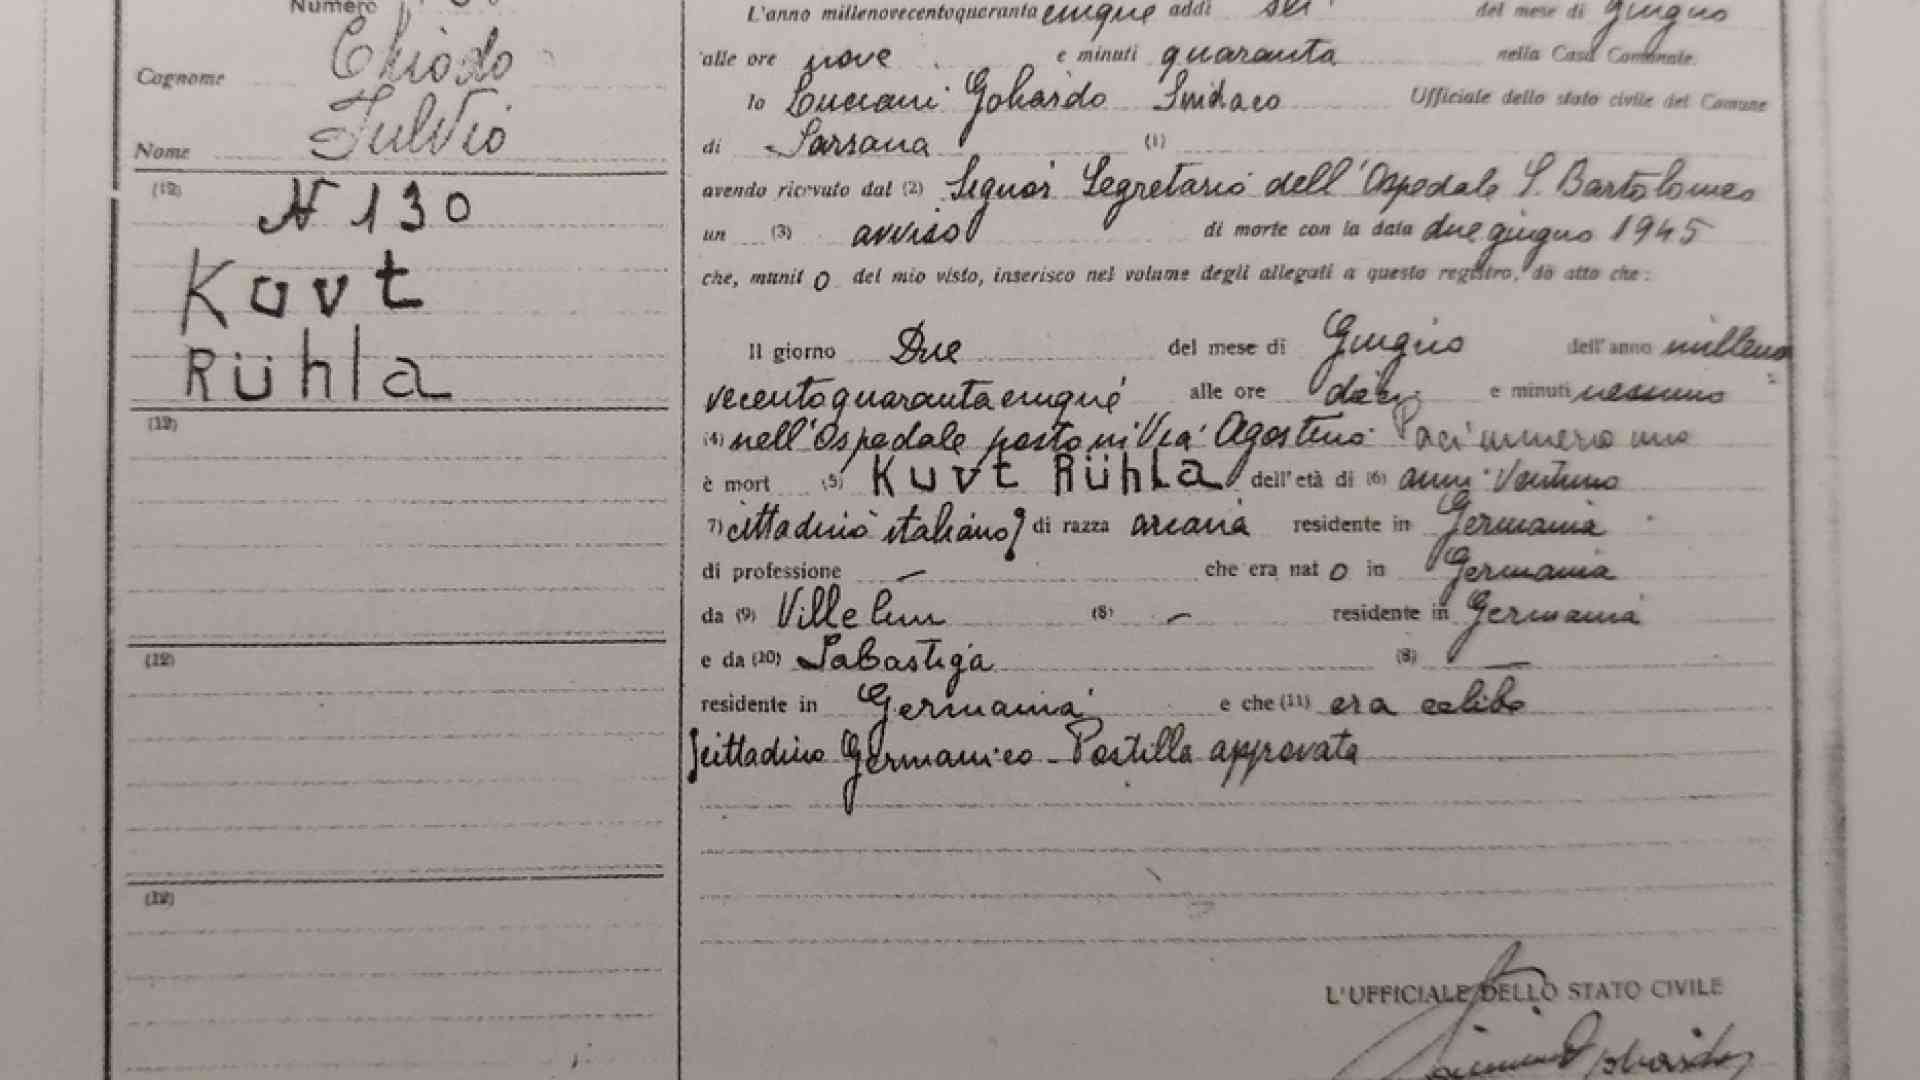 Numero
Cognome Chiodo
Nome Fulvio
(12) N 130
Kuvt
Rühla
(12)
(12)
(12)
L'anno millenovecentoquaranta cinque addì sei del mese di giugno
alle ore nove e minuti quaranta nella Casa Comunale.
Io Lucciani Gohardo Sindaco Ufficiale dello stato civile del Comune
di Sarzana (1)
avendo ricevuto dal (2) Signor Segretario dell'Ospedale S. Bartolomeo
un (3) avviso di morte con la data due giugno 1945
che, munit o del mio visto, inserisco nel volume degli allegati a questo registro, dò atto che:
Il giorno Due del mese di Giugno dell'anno milleno
vecentoquarantacinque alle ore dieci e minuti nessuno
(4) nell'Ospedale posto in Via Agostino Paci numero uno
è mort (5) Kuvt Rühla dell'età di (6) anni Ventuno
7) cittadino italiano di razza ariana residente in Germania
di professione — che era nat o in Germania
da (9) Villelm (8) — residente in Germania
e da (10) Sabastiga (8) —
residente in Germania e che (11) era celibe
cittadino Germanico - Postilla approvata
L'UFFICIALE DELLO STATO CIVILE